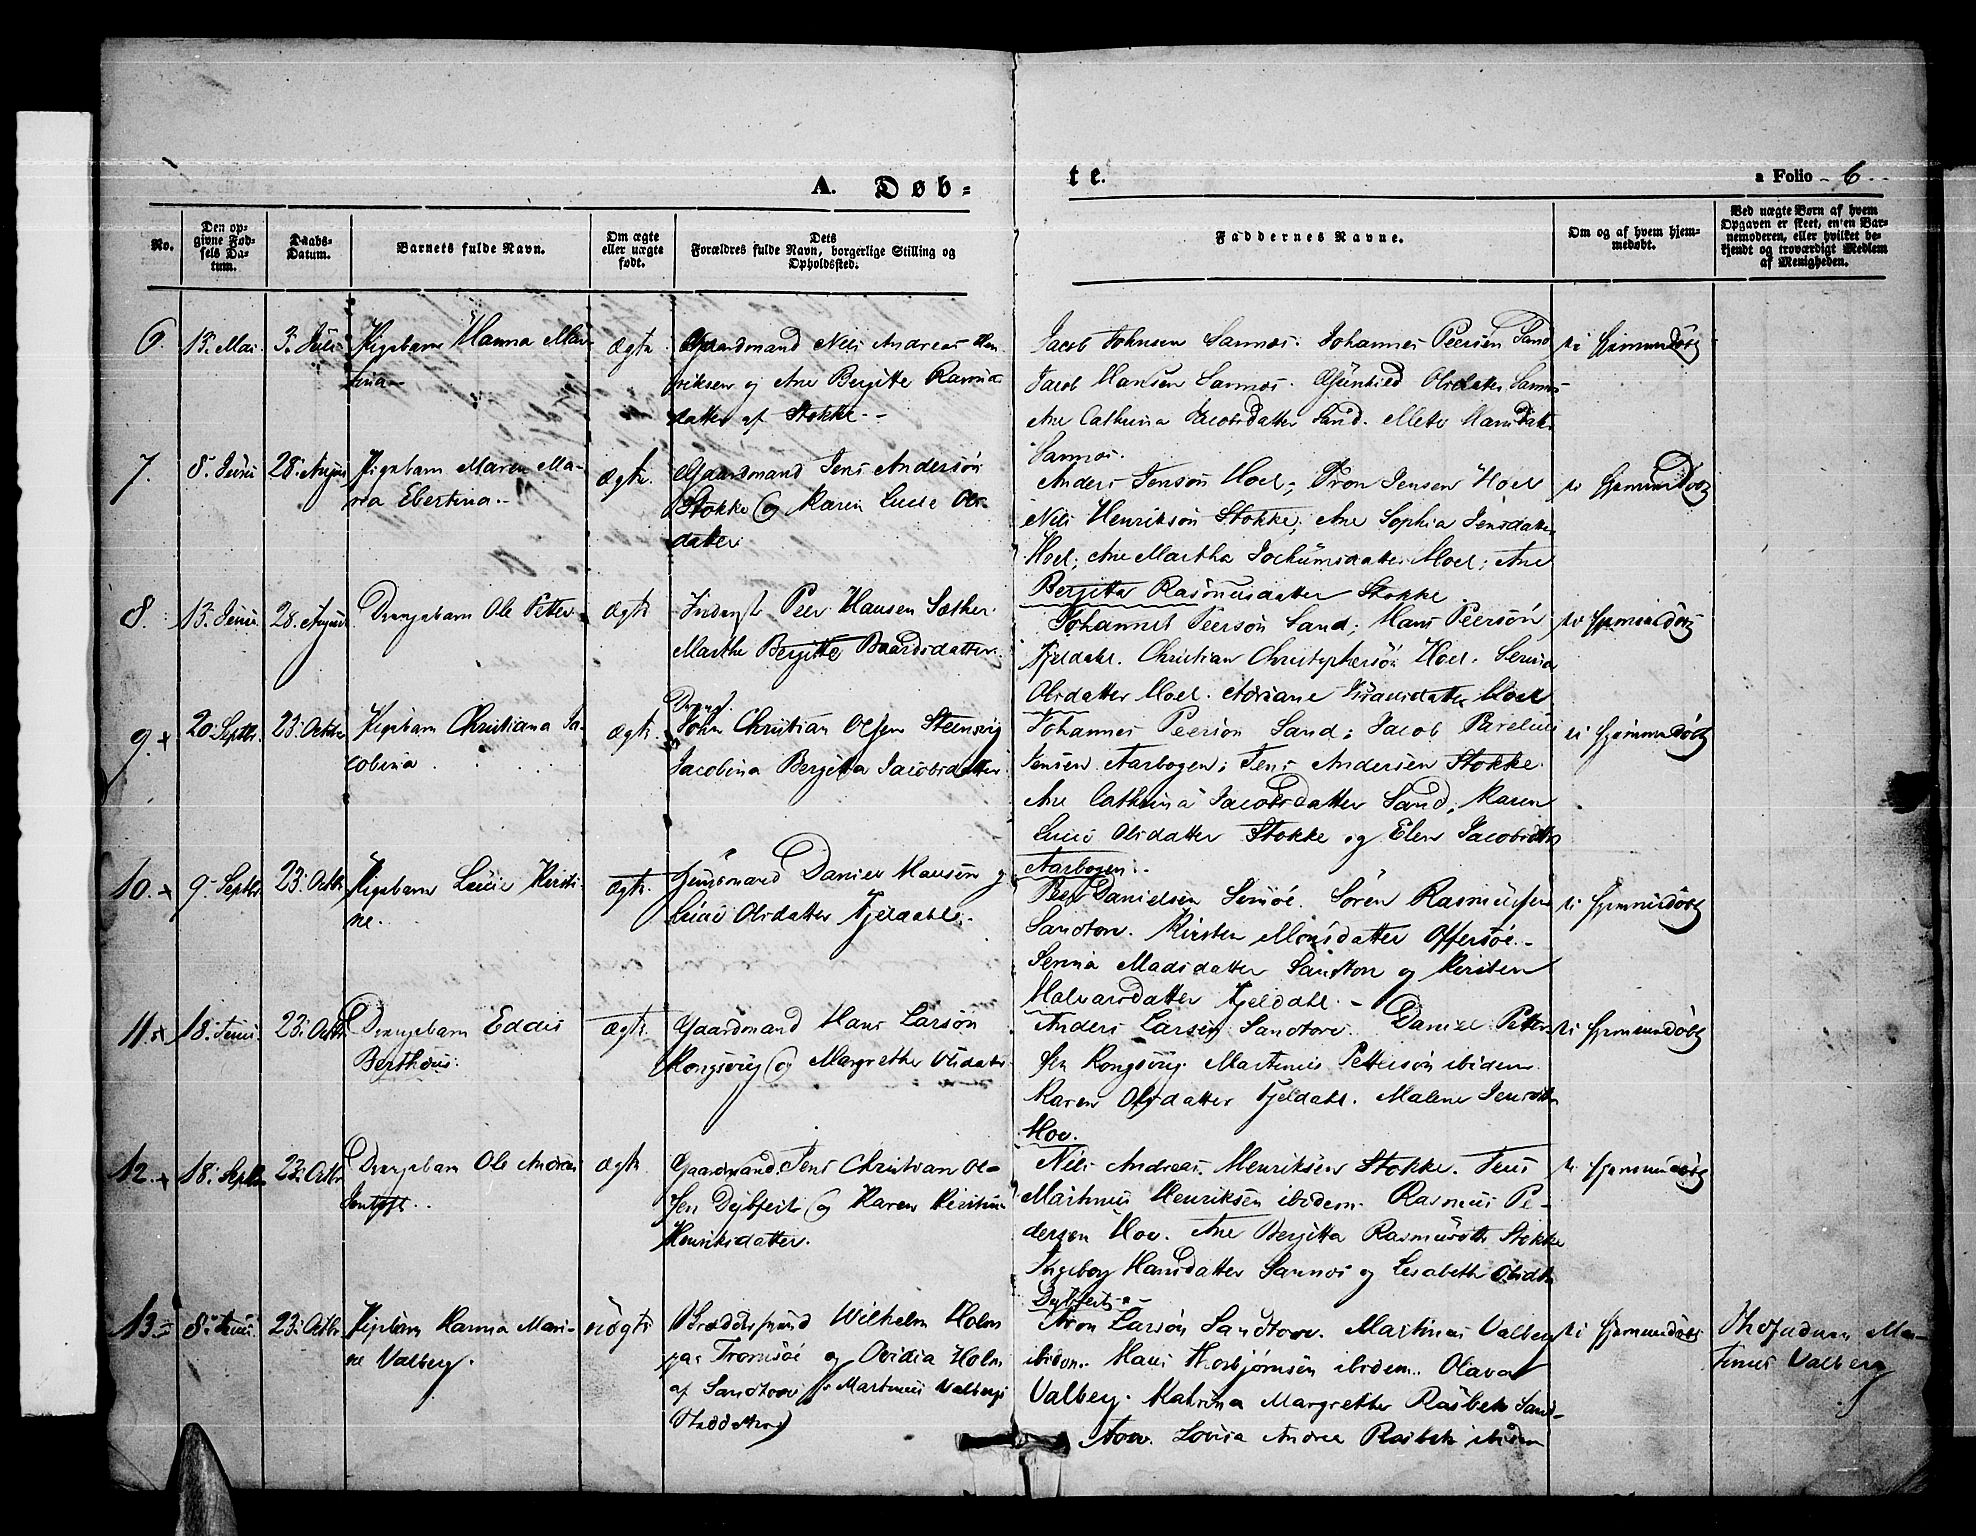 A. Døb-
te.
a Folio - 6 -
No.
Den opgivne Fødsels Datum.
Daabs-Datum.
Barnets fulde Navn.
Om ægte eller uægte født.
Dets Forældres fulde Navn, borgerlige Stilling og Opholdssted.
Faddernes Navne.
Om og af hvem hjemmedøbt.
Ved uægte Børn af hvem Opgaven er skeet, enten Barnemoderen, eller hvilket bekjendt og troværdigt Medlem af Menigheden.
6. 13. Mai. 3. Juli Pigebarn Hanna Mar-
tina
ægte.
Gaardmand Nils Andreas Hen
riksen og Ane Bergitte Rasmus
datter af Stokke.
Jacob Johnsen Sannes. Johannes Peersen Sand
Jacob Hansen Sannes. Gunhild Olsdatter Sannes
Ane Cathrina Jacobsdatter Sand. Mette Hansdatt.
Sannes.
ei hjemmedøbt
7. 8. Juni 28. August Pigebarn Maren Ma-
ria Ebertina.
ægte.
Gaardmand Jens Andersøn
Stokke og Karen Lucie Ols-
datter
Anders Jensøn Hoel; Tron Jensen Hoel
Nils Henriksøn Stokke; Ane Sophia Jensdatter
Hoel; Ane Martha Jochumsdatter Hoel; Ane
Bergitta Rasmusdatter Stokke
ei hjemmedøbt
8. 13. Juni. 28. August Drengebarn Ole Petter
ægte
Inderst Peer Hansen Sæther
Marthe Bergitte Baardsdatter.
Johannes Peersøn Sand; Hans Peersøn
Fjeldahl. Christian Christophersøn Hoel. Serina
Olsdatter Hoel. Adriane Hoel
ei hjemmedøbt
9. + 20. Septbr. 23. October Pigebarn Christiana Ja-
cobina
ægte.
John Christian Olsen Steensvig
Jacobina Bergitta Jacobsdatter
Johannes Peersøn Sand; Jacob Parelius
Jensen Aarbogen; Jens Andersen Stokke
Ane Cathrina Jacobsdatter Sand; Karen
Lucie Olsdatter Stokke og Elen Jacobsdtr
Aarbogen.
ei hjemmedøbt
10. + 9. Septbr 23. Octbr Pigebarn Lucie Kirsti-
ne.
ægte.
Huusmand Daniel Hansen og
Lucie Olsdatter Fjeldahl.
Peer Danielsen Søren Rasmussen
Sandtorv. Kirsten Monsdatter Offersøe.
Serina Madsdatter Sandtorv og Kirsten
Halvorsdatter Fjeldahl.
ei hjemmedøbt
11. + 18. Juni. 23. Octbr Drengebarn Eddis
Bertheus.
ægte.
Gaardmand Hans Larsøn
Kongsvig og Margrethe Olsdatter
Anders Larsen Sandtorv. Daniel Petter-
sen Kongsvig. Martinus Pettersøn ibidem
Karen Olsdatter Fjeldahl. Malene Jensdtr
Hov.
ei hjemmedøbt
12. + 18. Septbr 23. Octbr Drengebarn Ole Andreas
Jentoft.
ægte
Gaardmand Jens Christian Ol-
sen Dybfest og Karen Kirstine
Henriksdatter.
Nils Andreas Henriksen Stokke. Jens
Martinus Henriksen ibidem. Rasmus Pe-
dersen Hov. Ane Bergitta Rasmusdtr Stokke
Ingeborg Hansdatter Sannes og Lisabeth Olsdtr
Dybfest.
ei hjemmedøbt
13. 8. Juni. 23. Octbr Pigebarn Hanna Mari-
ne Valberg.
uægte
Wilhelm Holm
paa Tromsøe og Ovidia Holm
af Sandtorv (Martinus Valbergs
Steddatter)
Tron Larsøn Sandtorv. Martinus Valberg
ibidem. Hans Thorbjørnsen ibidem. Olava
Valberg. Katrina Margrethe Rasbek Sand-
torv. Lovisa Andrea Rasbek ibidem
ei hjemmedøbt
Stedfaderen Mar-
tinus Valberg